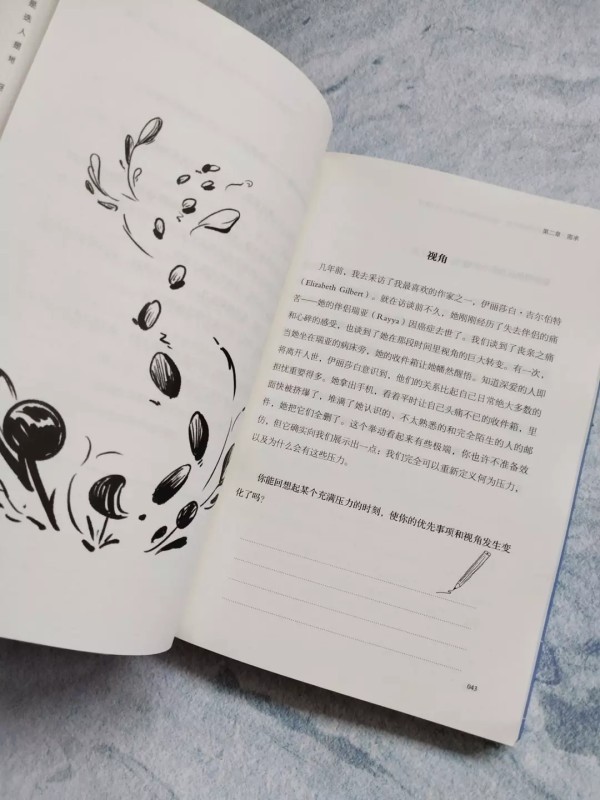 第二章
视角
几年前，我去采访了我最喜欢的作家之一，伊丽莎白·吉尔伯特
（Elizabeth Gilbert）。就在访谈前不久，她刚刚经历了失去伴侣的痛
苦——她的伴侣瑞亚（Rayya）因癌症去世了。我们谈到了丧亲之痛
和心碎的感受，也谈到了她在那段时间里视角的巨大转变。有一次，
当她坐在瑞亚的病床旁，她的收件箱让她幡然醒悟。知道深爱的人即
将离开人世，伊丽莎白意识到，他们的关系比起自己日常绝大多数的
担忧重要得多。她拿出手机，看着平时让自己头痛不已的收件箱，里
面快被挤爆了，堆满了她认识的、不太熟悉的和完全陌生的人的邮
件，她把它们全删了。这个举动看起来有些极端，你也许不准备效
仿，但它确实向我们展示出一点：我们完全可以重新定义何为压力，
以及为什么会有这些压力。
你能回想起某个充满压力的时刻，使你的优先事项和视角发生变
化了吗？
043